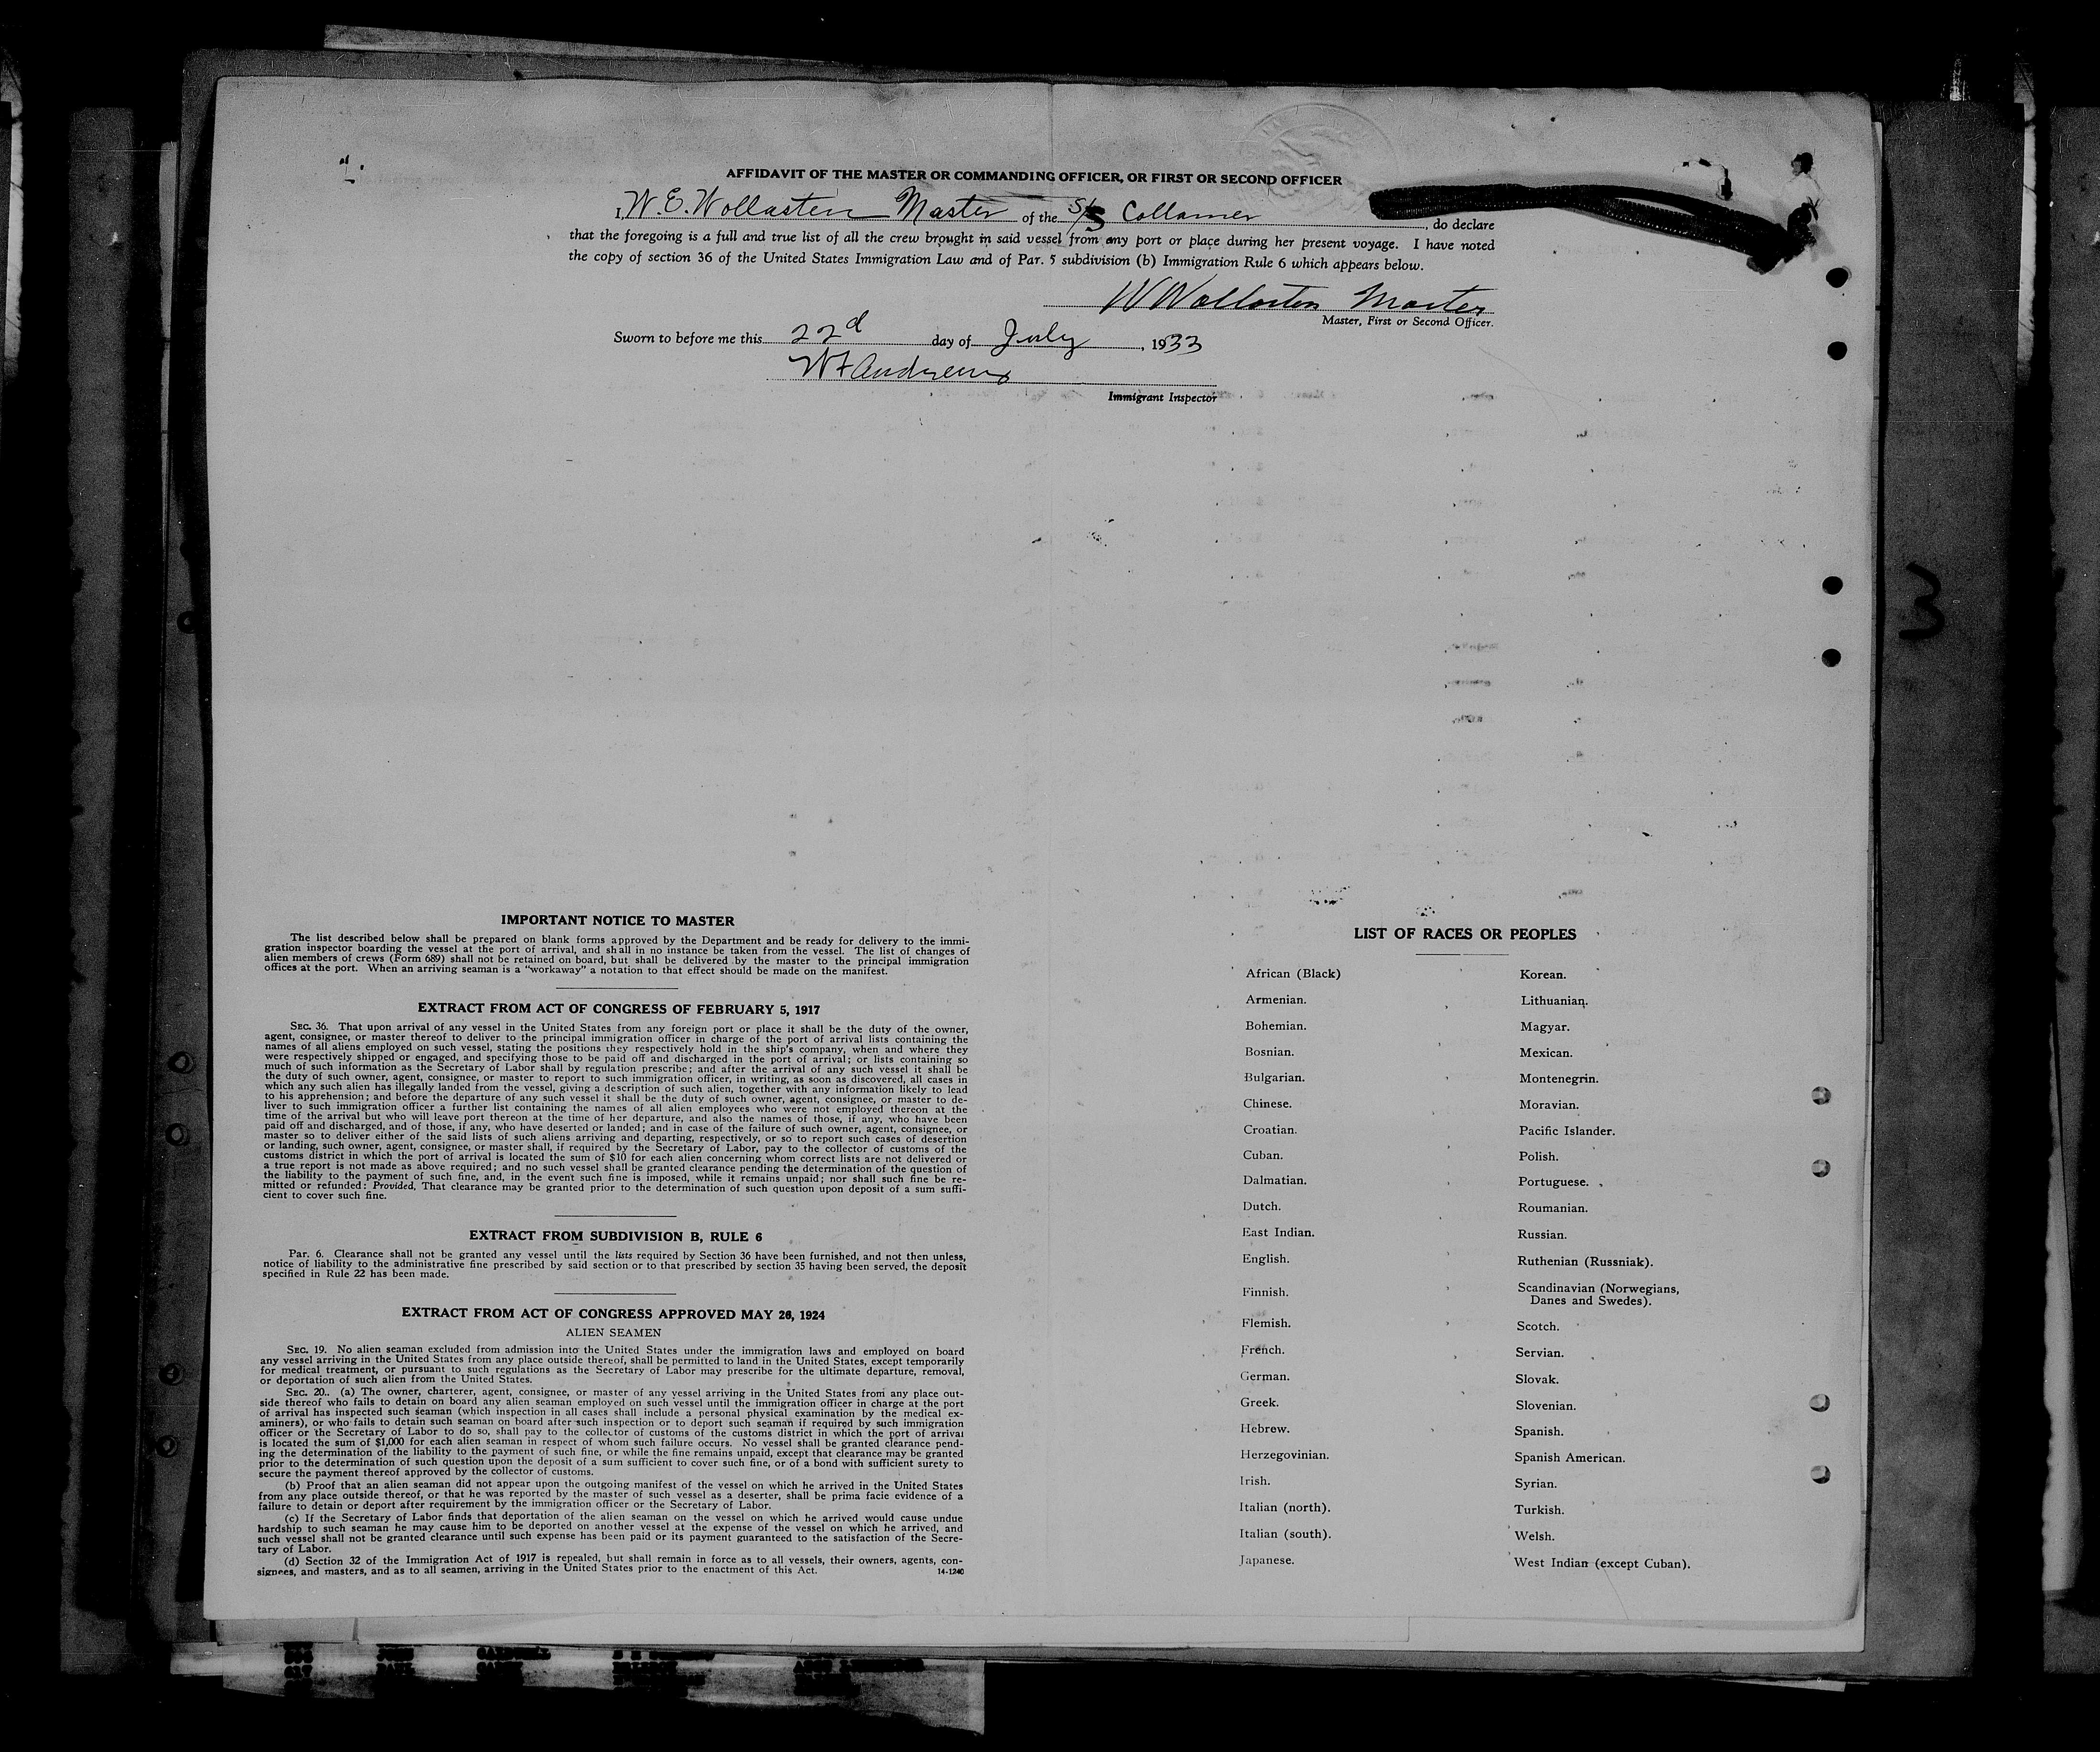 AFFIDAVIT OF THE MASTER OR COMMANDING OFFICER, OR FIRST OR SECOND OFFICER
I, W. E. Wollaston Master of the S/S Collamer, do declare
that the foregoing is a full and true list of all the crew brought in said vessel from any port or place during her present voyage. I have noted
the copy of section 36 of the United States Immigration Law and of Par. 5 subdivision (b) Immigration Rule 6 which appears below.
W Wollaston Master
Master, First or Second Officer.
Sworn to before me this 22d day of July, 1933
W F Andrews
Immigrant Inspector
3
IMPORTANT NOTICE TO MASTER
The list described below shall be prepared on blank forms approved by the Department and be ready for delivery to the immi-
gration inspector boarding the vessel at the port of arrival, and shall in no instance be taken from the vessel. The list of changes of
alien members of crews (Form 689) shall not be retained on board, but shall be delivered by the master to the principal immigration
offices at the port. When an arriving seaman is a "workaway" a notation to that effect should be made on the manifest.
EXTRACT FROM ACT OF CONGRESS OF FEBRUARY 5, 1917
SEC. 36. That upon arrival of any vessel in the United States from any foreign port or place it shall be the duty of the owner,
agent, consignee, or master thereof to deliver to the principal immigration officer in charge of the port of arrival lists containing the
names of all aliens employed on such vessel, stating the positions they respectively hold in the ship's company, when and where they
were respectively shipped or engaged, and specifying those to be paid off and discharged in the port of arrival; or lists containing so
much of such information as the Secretary of Labor shall by regulation prescribe; and after the arrival of any such vessel it shall be
the duty of such owner, agent, consignee, or master to report to such immigration officer, in writing, as soon as discovered, all cases in
which any such alien has illegally landed from the vessel, giving a description of such alien, together with any information likely to lead
to his apprehension; and before the departure of any such vessel it shall be the duty of such owner, agent, consignee, or master to de-
liver to such immigration officer a further list containing the names of all alien employees who were not employed thereon at the
time of the arrival but who will leave port thereon at the time of her departure, and also the names of those, if any, who have been
paid off and discharged, and of those, if any, who have deserted or landed; and in case of the failure of such owner, agent, consignee, or
master so to deliver either of the said lists of such aliens arriving and departing, respectively, or so to report such cases of desertion
or landing, such owner, agent, consignee, or master shall, if required by the Secretary of Labor, pay to the collector of customs of the
customs district in which the port of arrival is located the sum of $10 for each alien concerning whom correct lists are not delivered or
a true report is not made as above required; and no such vessel shall be granted clearance pending the determination of the question of
the liability to the payment of such fine, and, in the event such fine is imposed, while it remains unpaid; nor shall such fine be re-
mitted or refunded: Provided, That clearance may be granted prior to the determination of such question upon deposit of a sum suffi-
cient to cover such fine.
EXTRACT FROM SUBDIVISION B, RULE 6
Par. 6. Clearance shall not be granted any vessel until the lists required by Section 36 have been furnished, and not then unless,
notice of liability to the administrative fine prescribed by said section or to that prescribed by section 35 having been served, the deposit
specified in Rule 22 has been made.
EXTRACT FROM ACT OF CONGRESS APPROVED MAY 26, 1924
ALIEN SEAMEN
SEC. 19. No alien seaman excluded from admission into the United States under the immigration laws and employed on board
any vessel arriving in the United States from any place outside thereof, shall be permitted to land in the United States, except temporarily
for medical treatment, or pursuant to such regulations as the Secretary of Labor may prescribe for the ultimate departure, removal,
or deportation of such alien from the United States.
SEC. 20.. (a) The owner, charterer, agent, consignee, or master of any vessel arriving in the United States from any place out-
side thereof who fails to detain on board any alien seaman employed on such vessel until the immigration officer in charge at the port
of arrival has inspected such seaman (which inspection in all cases shall include a personal physical examination by the medical ex-
aminers), or who fails to detain such seaman on board after such inspection or to deport such seaman if required by such immigration
officer or the Secretary of Labor to do so, shall pay to the collector of customs of the customs district in which the port of arrival
is located the sum of $1,000 for each alien seaman in respect of whom such failure occurs. No vessel shall be granted clearance pend-
ing the determination of the liability to the payment of such fine, or while the fine remains unpaid, except that clearance may be granted
prior to the determination of such question upon the deposit of a sum sufficient to cover such fine, or of a bond with sufficient surety to
secure the payment thereof approved by the collector of customs.
(b) Proof that an alien seaman did not appear upon the outgoing manifest of the vessel on which he arrived in the United States
from any place outside thereof, or that he was reported by the master of such vessel as a deserter, shall be prima facie evidence of a
failure to detain or deport after requirement by the immigration officer or the Secretary of Labor.
(c) If the Secretary of Labor finds that deportation of the alien seaman on the vessel on which he arrived would cause undue
hardship to such seaman he may cause him to be deported on another vessel at the expense of the vessel on which he arrived, and
such vessel shall not be granted clearance until such expense has been paid or its payment guaranteed to the satisfaction of the Secre-
tary of Labor.
(d) Section 32 of the Immigration Act of 1917 is repealed, but shall remain in force as to all vessels, their owners, agents, con-
signees, and masters, and as to all seamen, arriving in the United States prior to the enactment of this Act.
14-1240
LIST OF RACES OR PEOPLES
African (Black)
Armenian.
Bohemian.
Bosnian.
Bulgarian.
Chinese.
Croatian.
Cuban.
Dalmatian.
Dutch.
East Indian.
English.
Finnish.
Flemish.
French.
German.
Greek.
Hebrew.
Herzegovinian.
Irish.
Italian (north).
Italian (south).
Japanese.
Korean.
Lithuanian.
Magyar.
Mexican.
Montenegrin.
Moravian.
Pacific Islander.
Polish.
Portuguese.
Roumanian.
Russian.
Ruthenian (Russniak).
Scandinavian (Norwegians,
Danes and Swedes).
Scotch.
Servian.
Slovak.
Slovenian.
Spanish.
Spanish American.
Syrian.
Turkish.
Welsh.
West Indian (except Cuban).